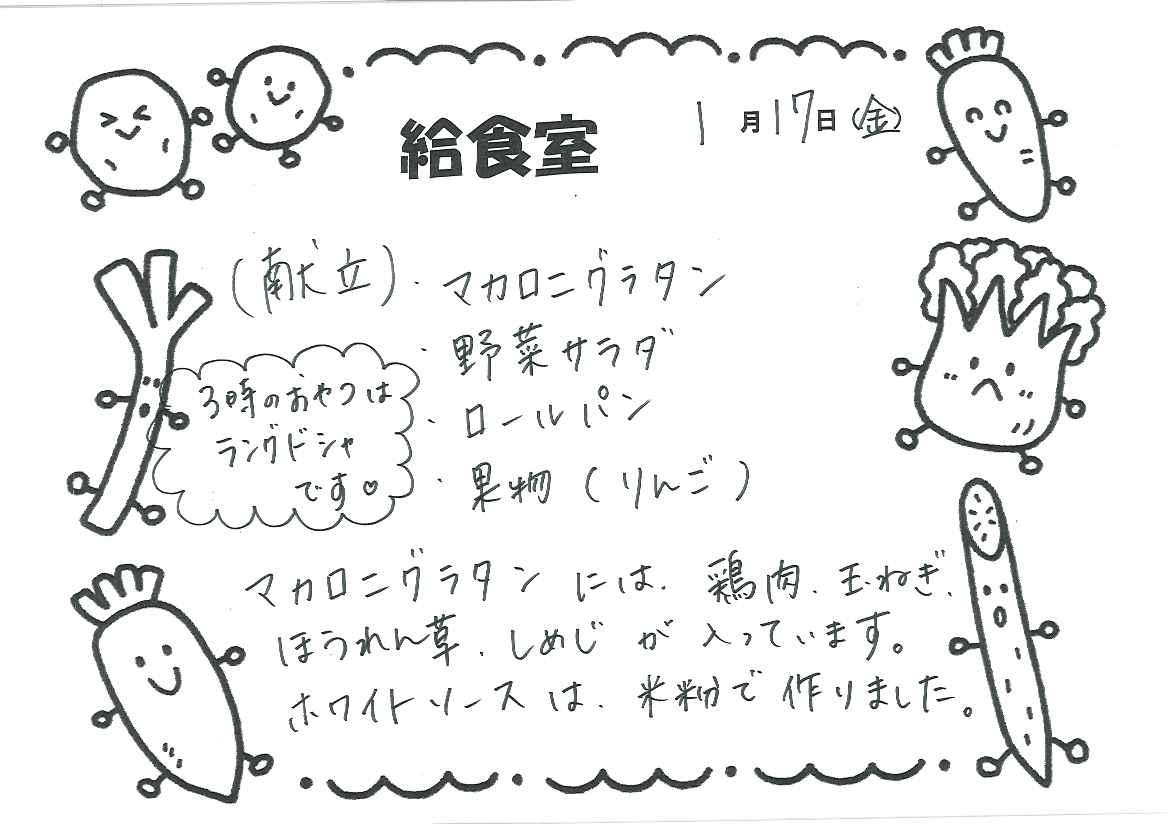 給食室
1月17日(金)
(献立)・マカロニグラタン
・野菜サラダ
・ロールパン
・果物(りんご)
3時のおやつは
ラングドシャ
です♡
マカロニグラタンには、鶏肉、玉ねぎ、
ほうれん草、しめじが入っています。
ホワイトソースは、米粉で作りました。